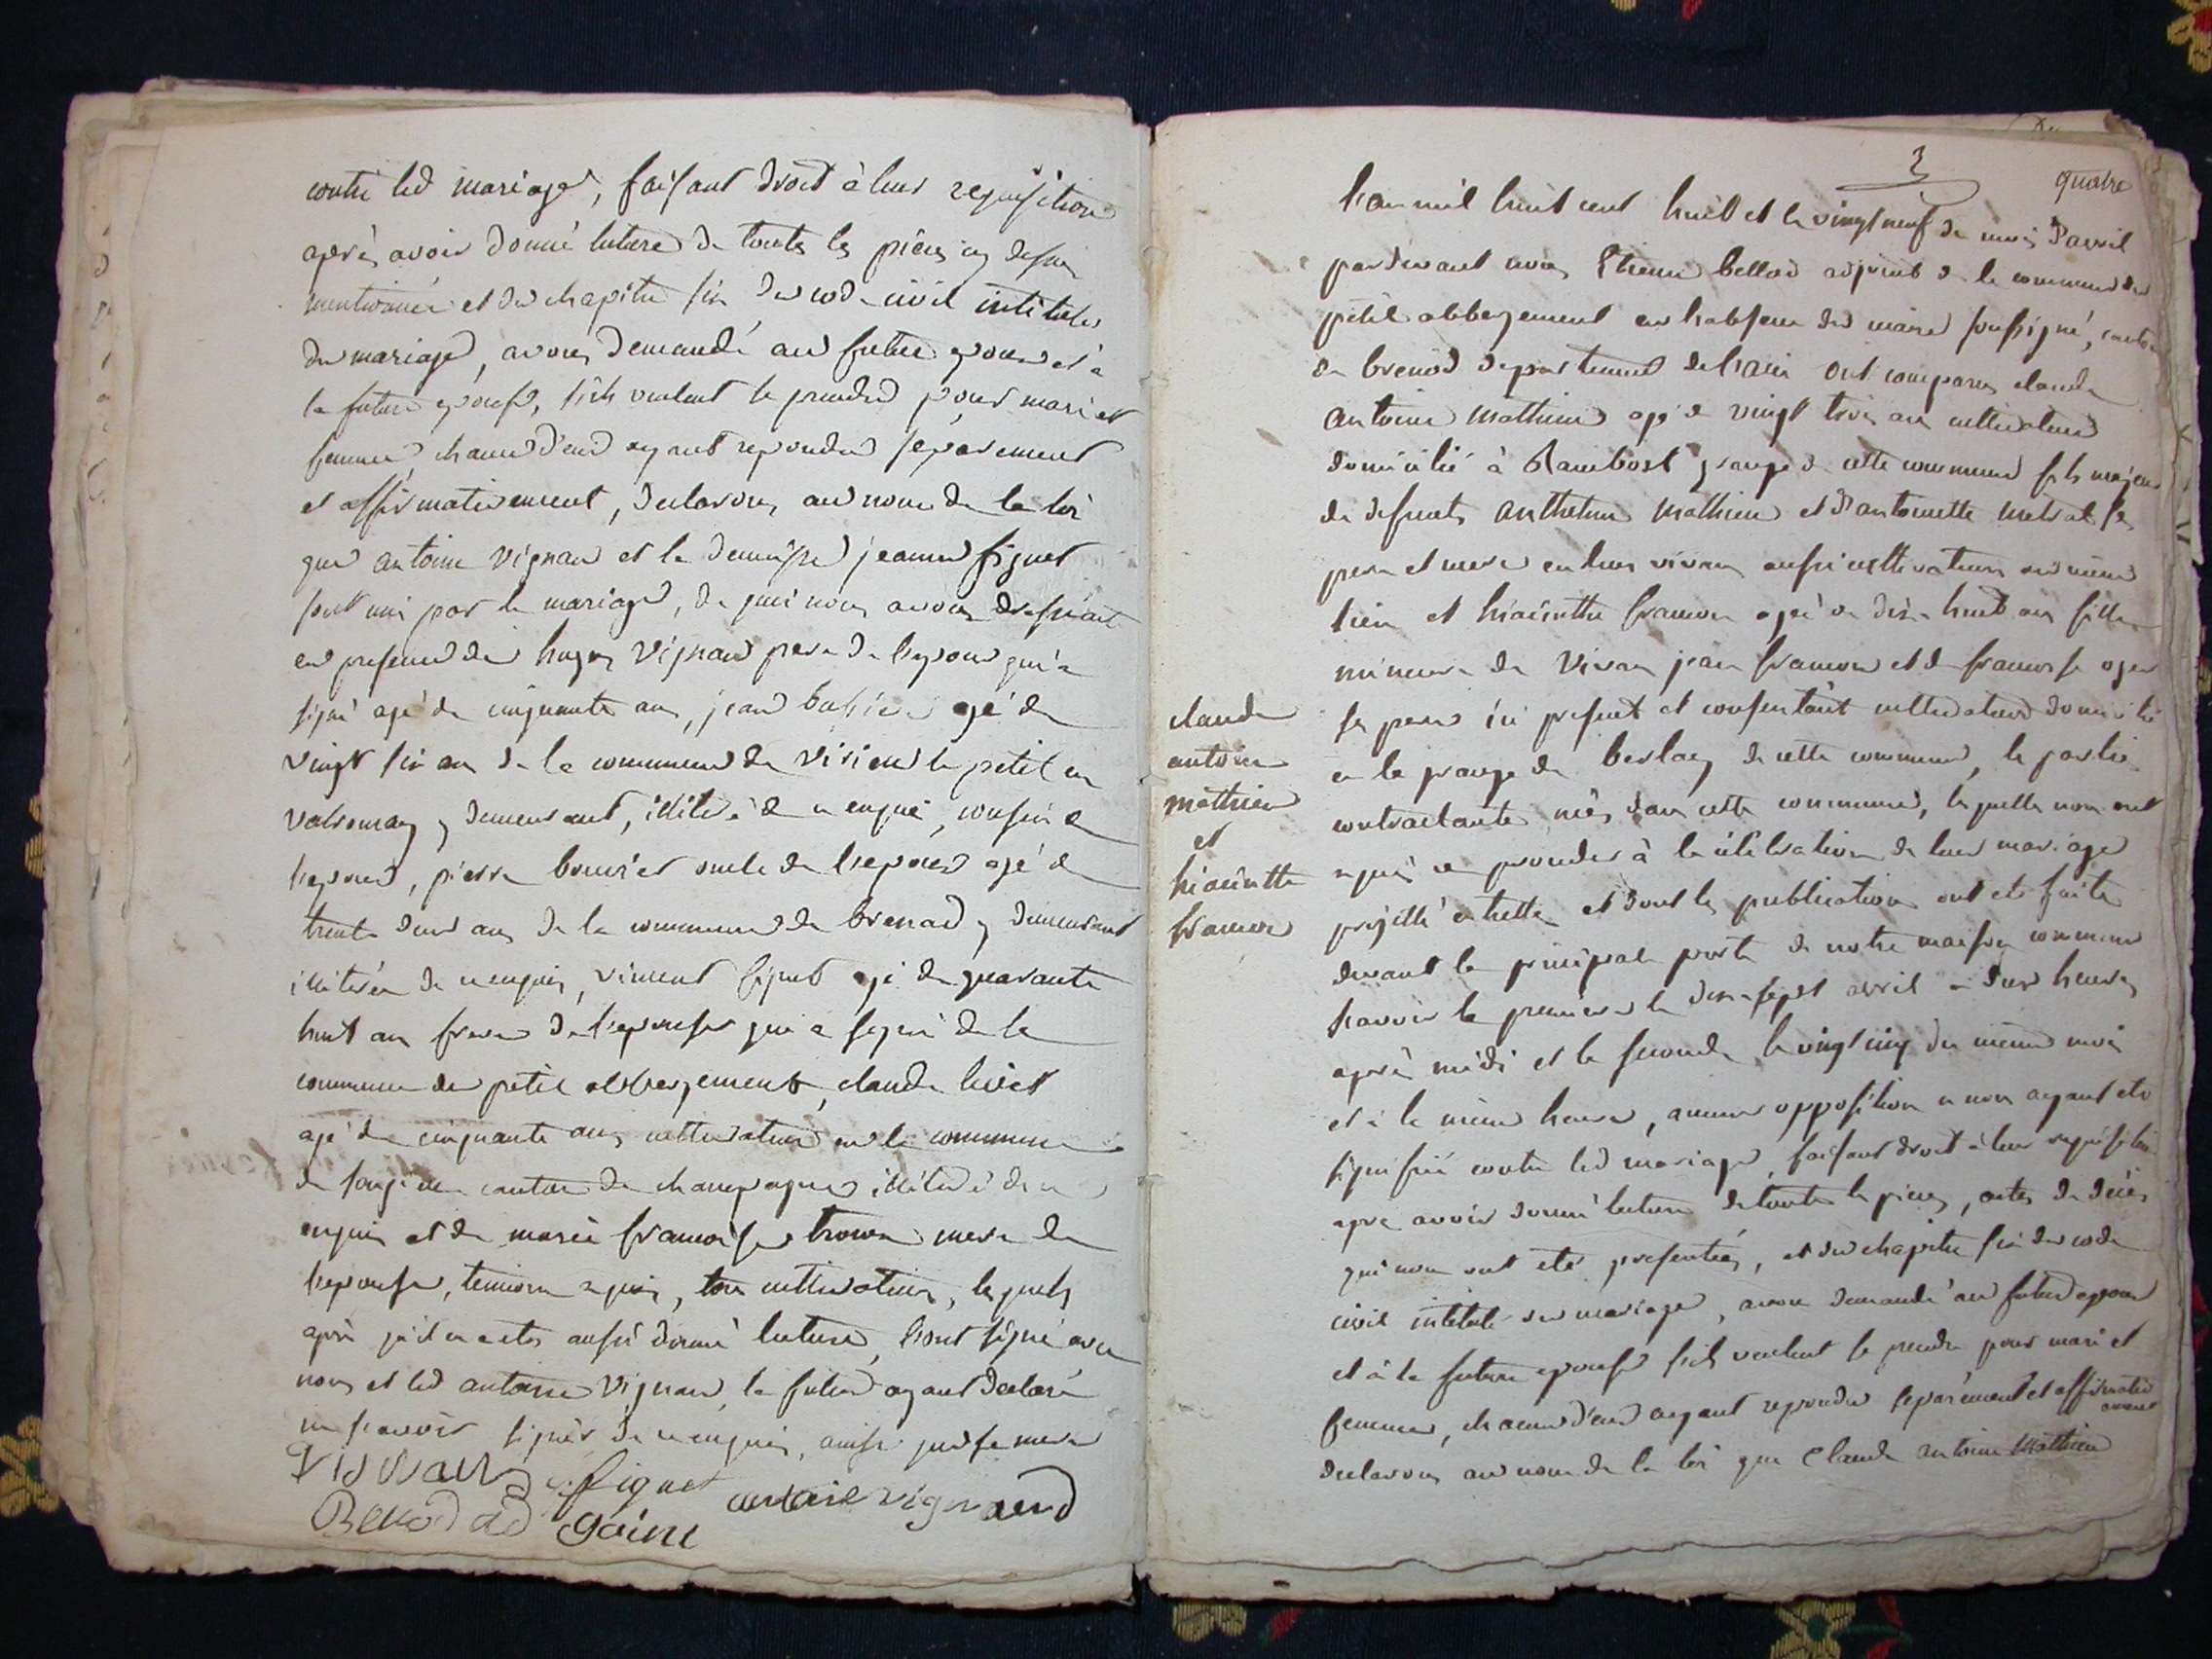 contre led mariage, faisant droit à leur requisition
après avoir donné lecture de toutes les pièces cy dessus
mentionnée et du chapitre six du code civil intitulés
du mariage, avons demandé au futur epoux et a
la future epouse, s'ils veulent se prendre pour mari et
femme, chacun d'eux ayant repondu separement
et affirmativement, declarons au nom de la loi
que antoine vignau et la demoiselle jeanne figuet
sont uni par le mariage, de quoi nous avons dressé acte
en presence de hugues vignau pere de l'epoux qui a
signé agé de cinquante ans, jean agé de
vingt six ans de la commune de virieu le petit en
valromey y demeurant, illiteré de ce enquis, cousin de
l'epoux, pierre bouvier oncle de l'epoux agé de
trente deux ans de la commune de brenaz y demeurant
illiteré de ce enquis, vincent figuet agé de quarante
huit ans frere de l'epouse qui a signé de la
commune de petit abbergement, claude
agé de cinquante ans cultivateur en la commune
de songieu canton de champagne illiteré de ce
enquis et de marie francoise mere de
l'epouse, temoins requis, tous cultivateurs, lesquels
après qu'il en a eté aussi donné lecture, l'ont signé avec
nous et led antoine vignau, la future ayant declaré
ne scavoir signer de ce enquis, ainsi que sa mere
figuet antoine vignaud
goini
3 quatre
l'an mil huit cent huit et le vingt neuf du mois d'avril
pardevant nous Etienne adjoint de la commune de
petit abbergement en l'absence du maire soussigné, canton
de brenod departement de l'ain ont comparus claude
antoine mathieu agé de vingt trois ans cultivateur
domicilié à Rambost grange de cette commune fils majeur
de defunts anthelme mathieu et d'antoinette metral ses
pere et mere en leur vivans aussi cultivateurs au même
lieu et hiacinthe francon agée de dix-huit ans fille
mineure de vivans jean francon et de francoise
sa pere ici present et consentant cultivateur domicilié
a la grange de de cette commune, les parties
contractante nées dans cette commune, lesquelle nous ont
requis de proceder à la celebration de leur mariage
projetté entr'elle et dont les publications ont eté faite
devant la principale porte de notre maison commune
scavoir la premiere le dix-sept avril a deux heures
après midi et la seconde le vingt cinq du même mois
et à la même heure, aucune opposition ne nous ayant eté
signifiée contre led mariage, faisant droit à leur requisition
apre avoir donné lecture de toute les pieces, actes de décès
qui nous ont eté presentées, et du chapitre six du code
civil intitulé du mariage, avons demandé au futur epoux
et à la future epouse s'ils veulent se prendre pour mari et
femme, chacun d'eux ayant repondu separément et affirmative
ment
declarons au nom de la loi que Claude antoine Mathieu
claude
antoine
mathieu
et
hiacinthe
francon